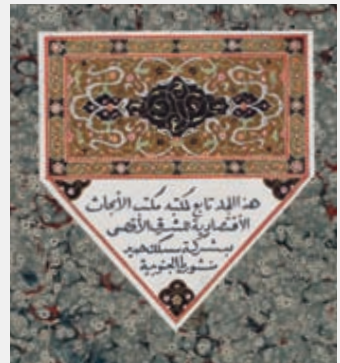 هذا الجلد تابع لمكتبة مكتب الأبحاث
الاقتصادية للشرق الأقصى
بشركة سكك حديد
منشوريا الجنوبية